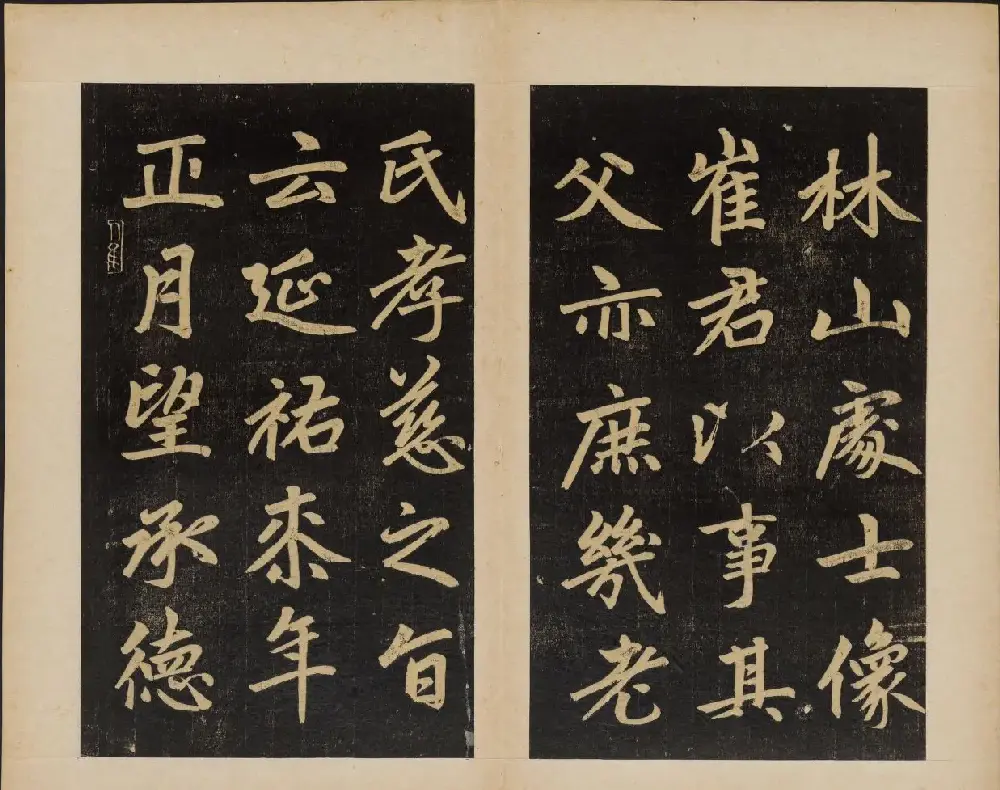 林山處士像
崔君以事其
父亦庶幾老
氏孝慈之旨
云延祐來年
正月望承德